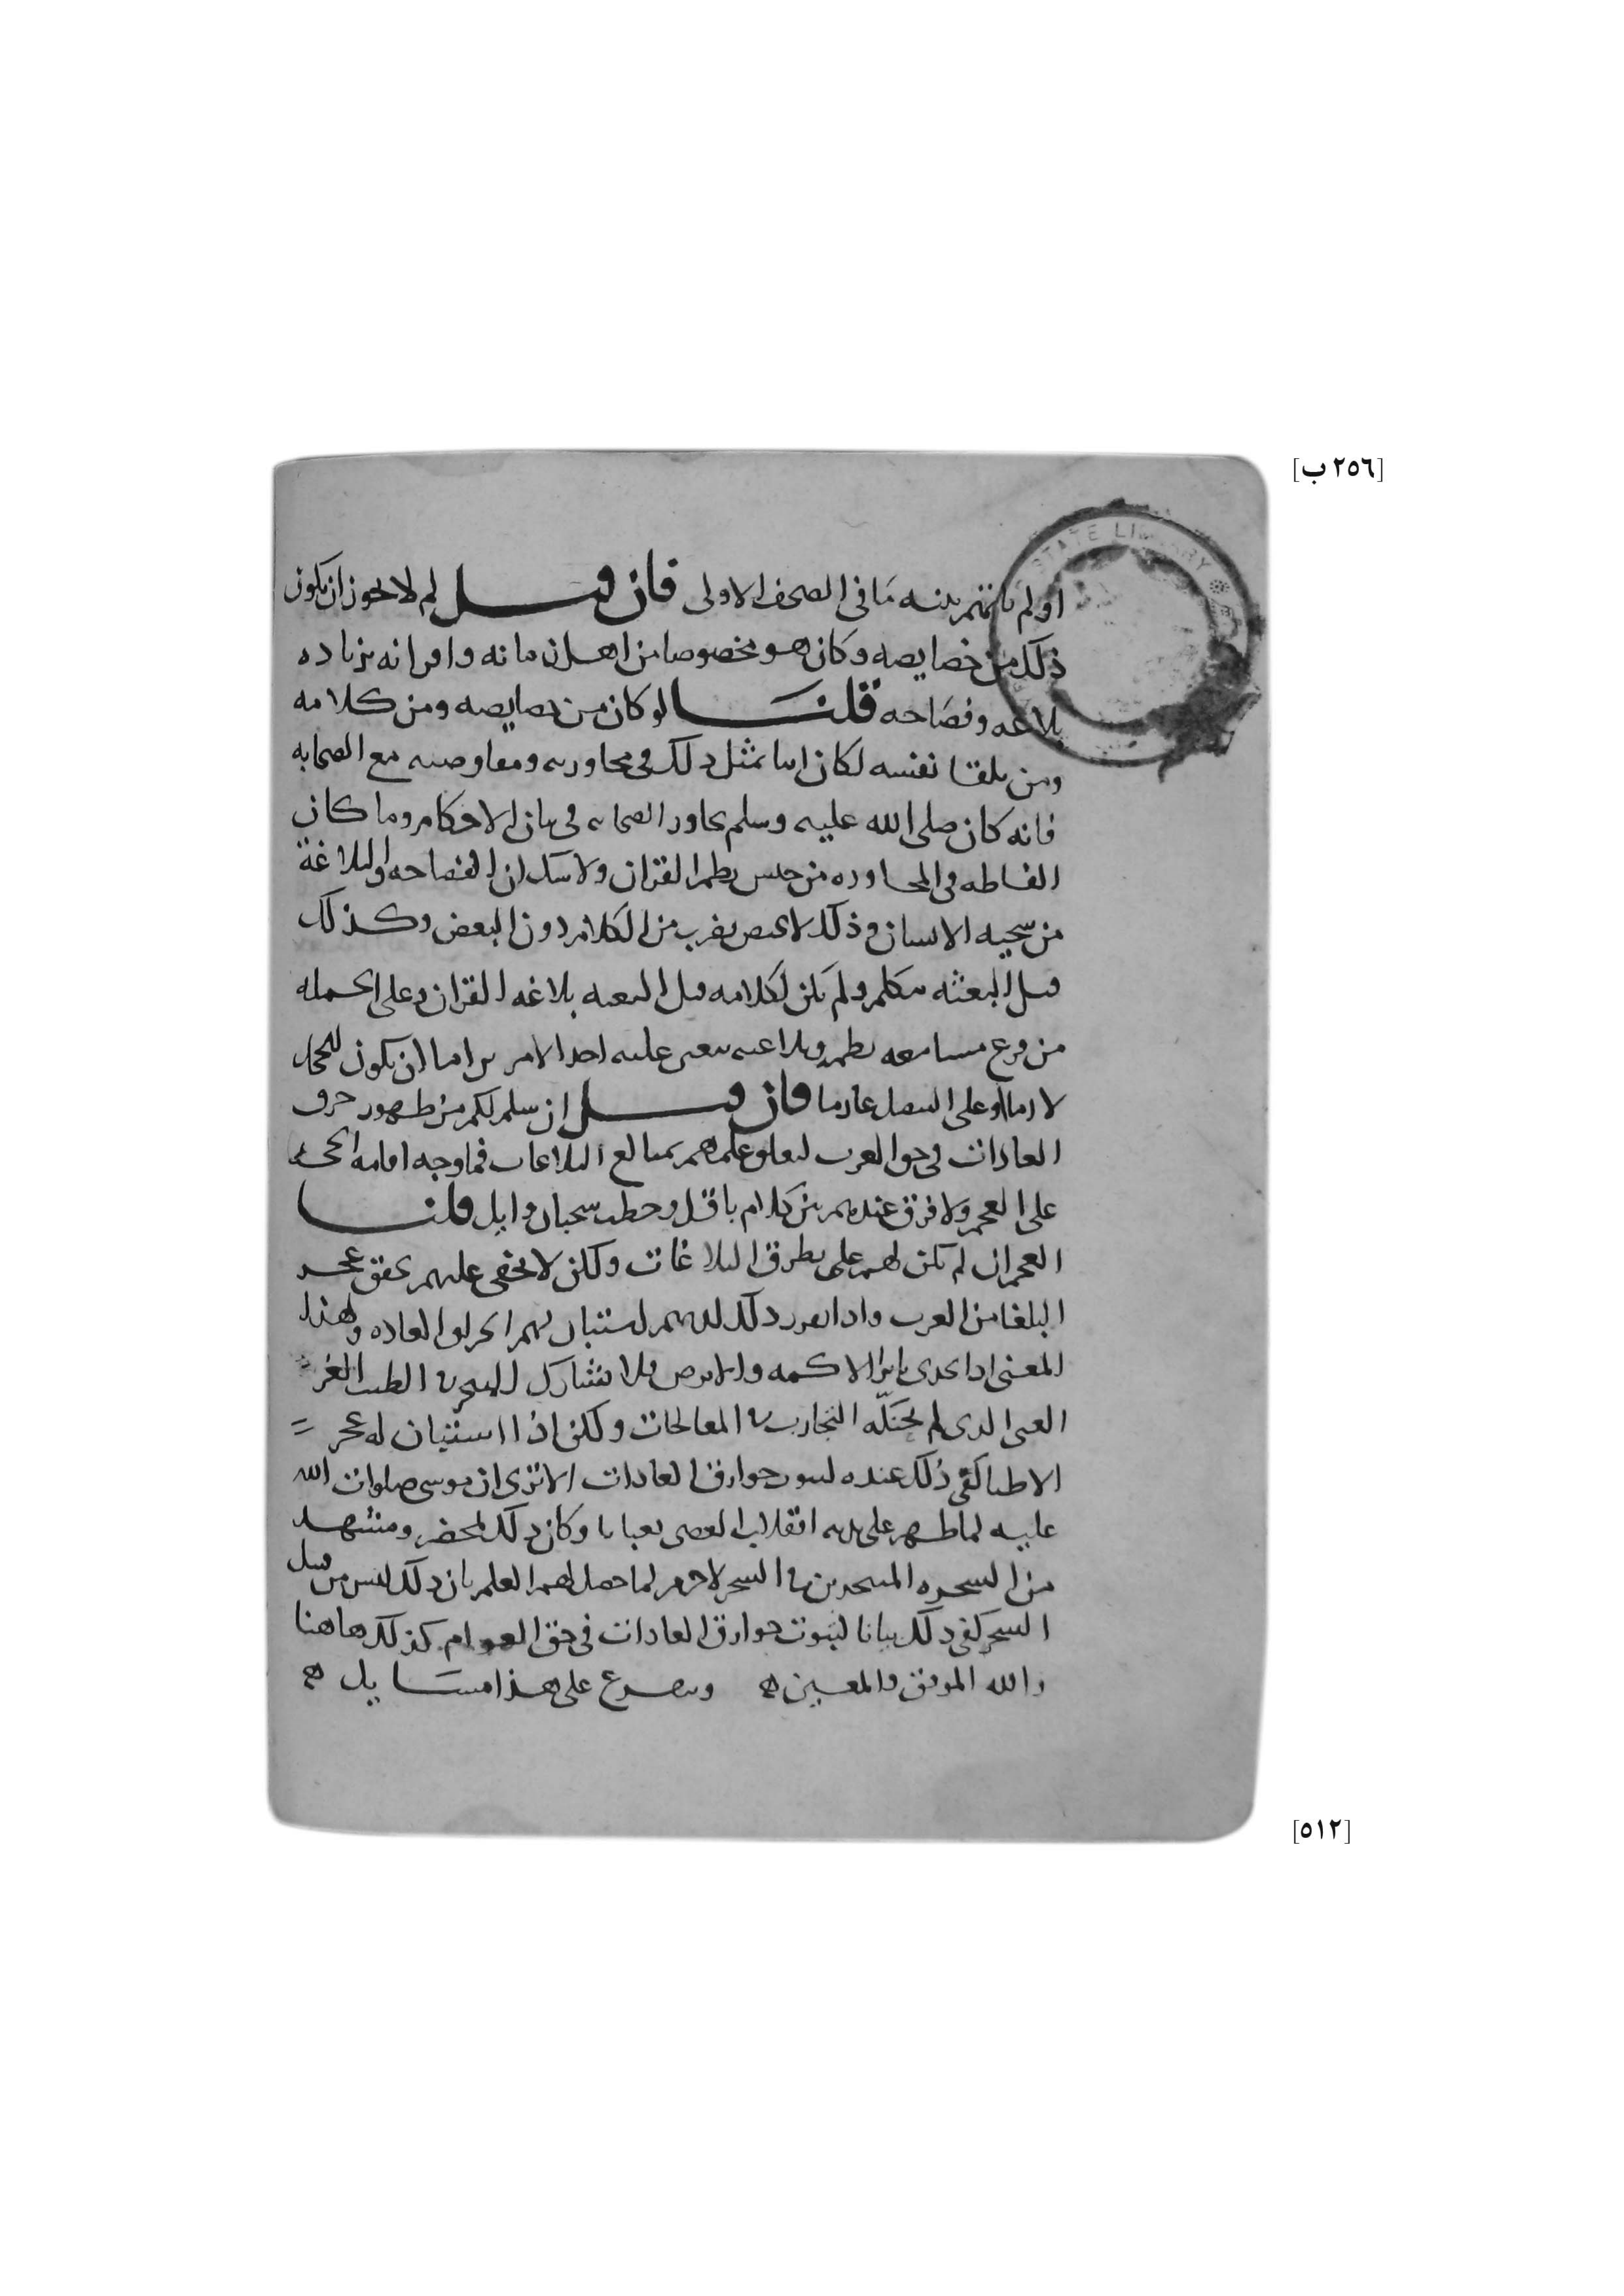 [٢٥٦ ب]
STATE LIBRARY
اولم ياتهم بينه ما في الصحف الاولى فان قيل لم لا يجوز ان يكون
ذلك من خصايصه وكان هو مخصوصا من اهل زمانه واقرانه بزياده
بلاغه وفصاحه قلنا لو كان من خصايصه ومن كلامه
ومن تلقا نفسه لكان اتيا بمثل ذلك في محاورته ومفاوضته مع الصحابه
فانه كان صلى الله عليه وسلم يحاور الصحابه في بيان الاحكام وما كان
الفاظه في المحاوره من جنس نظم القران ولا شك ان الفصاحه والبلاغة
من سجيه الانسان وذلك لا يختص بضرب من الكلام دون البعض وكذلك
قبل البعثه يتكلم ولم يكن لكلامه قبل البعثه بلاغه القران وعلى الجمله
من قرع مسامعه نظمه وبلاغته تعين عليه احد الامرين اما ان يكون للحجل
لازما او على التبصل عازما فان قيل ان سلم لكم من ظهور خرق
العادات في حق العرب لتعلق علمهم بمبالغ البلاغات فما وجه اقامه الحجه
على العجم ولا فرق عندهم بين كلام باقل وخطب سحبان وايل قلنا
العجم ان لم يكن لهم علم بطرق البلاغات ولكن لا يخفى عليهم تحقق عجز
البلغا من العرب واذا تقرر ذلك لديهم استبان لهم انخراق العاده وهذا
المعنى اذا تحدى بابرا الاكمه والابرص فلا يشارك المتبحر في الطب الغر
الغبي الذي لم تحنكه التجارب في المعالجات ولكن اذا استبان له عجز
الاطبا كفى ذلك عنده لثبوت خوارق العادات الا ترى ان موسى صلوات الله
عليه لما ظهر على يديه انقلاب العصى ثعبانا وكان ذلك بمحضر ومشهد
من السحره المتبحرين في السحر لا جرم لما حصل لهم العلم بان ذلك ليس من قبيل
السحر كفى ذلك بيانا لثبوت خوارق العادات في حق العوام كذلك هاهنا
والله الموفق والمعين ويتفرع على هذا مسايل
[٥١٢]